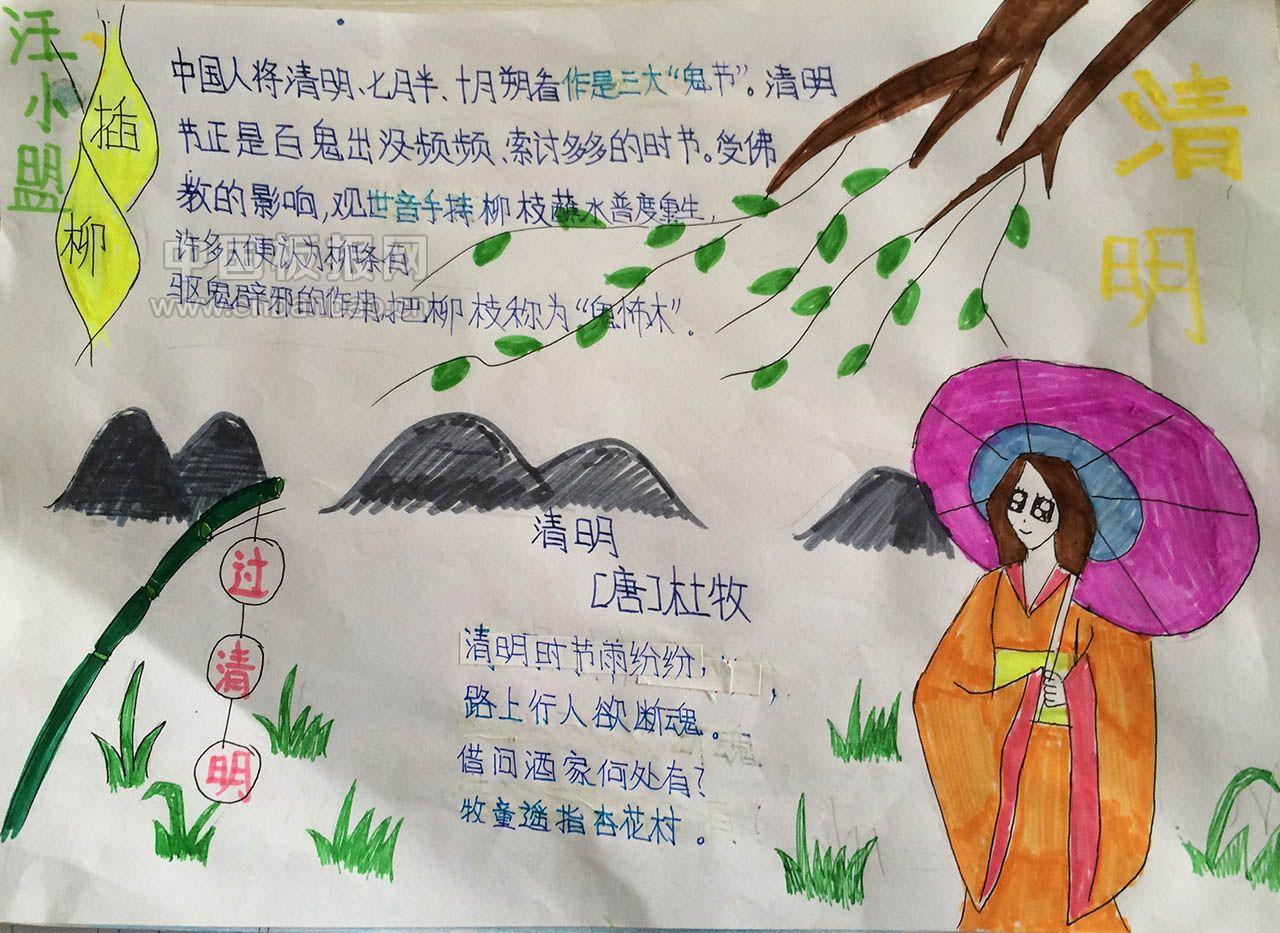 汪小盟
插柳
中国人将清明、七月半、十月朔看作是三大“鬼节”。清明
节正是百鬼出没频频、索讨多多的时节。受佛
教的影响,观世音手持柳枝蘸水普度重生,
许多人便认为柳条有
驱鬼辟邪的作用,把柳枝称为“鬼怖木”.
中国板报网
清明
清明
[唐]杜牧
清明时节雨纷纷,
路上行人欲断魂。
借问酒家何处有?
牧童遥指杏花村。
过清明